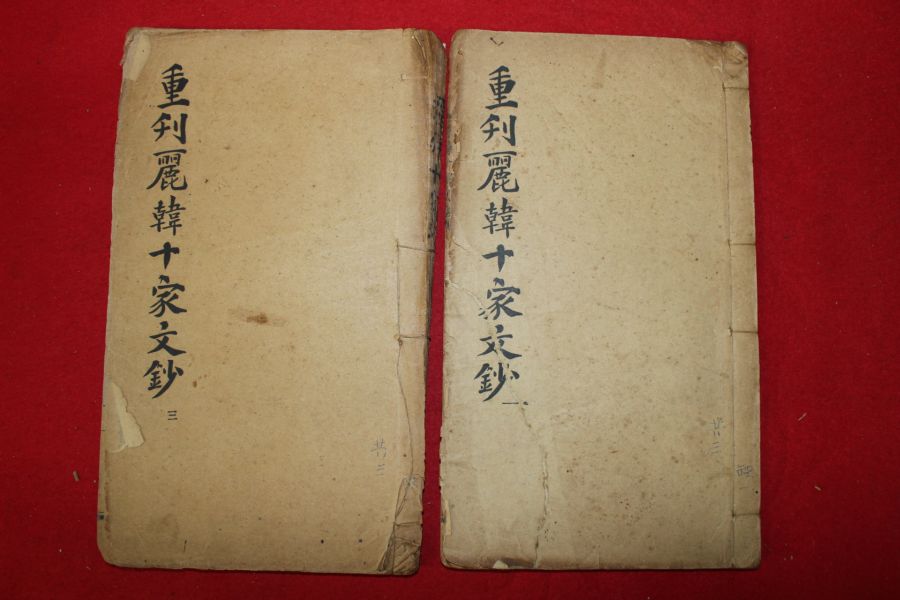 重刊麗韓十家文鈔 一
共二
重刊麗韓十家文鈔 三
共二